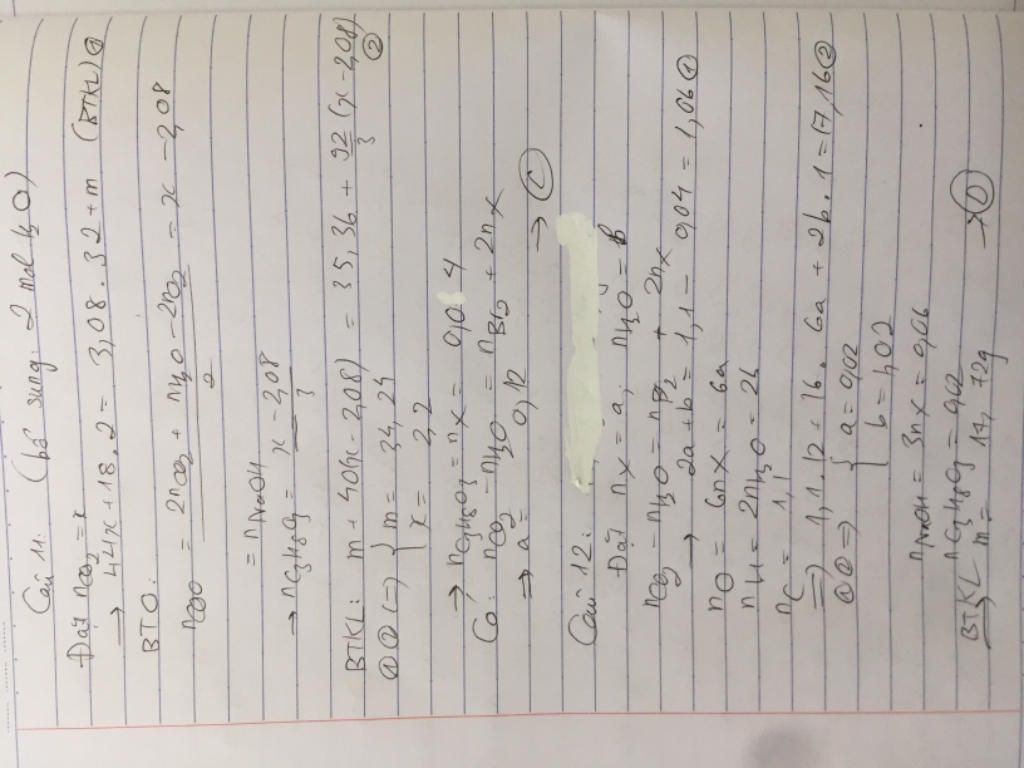 Câu 11: (bổ sung: 2 mol H2O)
Đặt nCO2 = x
→ 44x + 18.2 = 3,08.32 + m (BTKL) ①
BTO:
nCOO = 2nCO2 + nH2O - 2nO2 / 2 = x - 2,08
= nNaOH
→ nC3H8O3 = x - 2,08 / 3
BTKL: m + 40(x - 2,08) = 35,36 + 92/3 (x - 2,08) ②
①② (=) { m = 34,24
x = 2,2
→ nC3H8O3 = nX = 0,04
Có: nCO2 - nH2O = nBr2 + 2nX
=> a = 0,12 → Ⓒ
Câu 12:
Đặt nX = a; nH2O = b
nCO2 - nH2O = nBr2 + 2nX
→ 2a + b = 1,1 - 0,04 = 1,06 ①
nO = 6nX = 6a
nH = 2nH2O = 2b
nC = 1,1
=> 1,1.12 + 16.6a + 2b.1 = 17,16 ②
①② => { a = 0,02
b = 1,02
nNaOH = 3nX = 0,06
nC3H8O3 = 0,02
BTKL m = 17,72g → Ⓓ